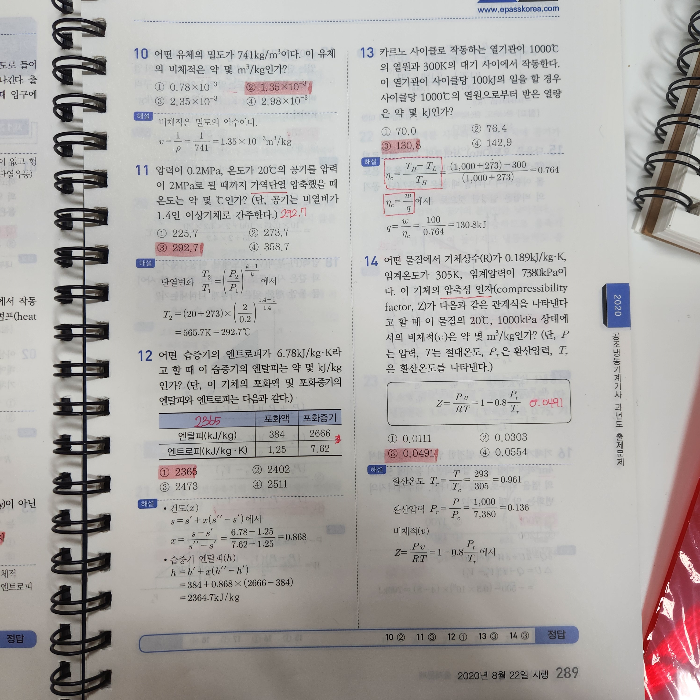 www.epasskorea.com
10 어떤 유체의 밀도가 741kg/m³이다. 이 유체
의 비체적은 약 몇 m³/kg인가?
① 0.78×10⁻³ ② 1.35×10⁻³
③ 2.35×10⁻³ ④ 2.98×10⁻³
해설
비체적은 밀도의 역수이다.
v=1/ρ=1/741=1.35×10⁻³m³/kg
11 압력이 0.2MPa, 온도가 20℃의 공기를 압력
이 2MPa로 될 때까지 가역단열 압축했을 때
온도는 약 몇 ℃인가? (단, 공기는 비열비가
1.4인 이상기체로 간주한다.) 292.7
① 225.7 ② 273.7
③ 292.7 ④ 358.7
해설
단열변화 T₂/T₁=(P₂/P₁)^((k-1)/k) 에서
T₂=(20+273)×(2/0.2)^((1.4-1)/1.4)
=565.7K=292.7℃
12 어떤 습증기의 엔트로피가 6.78kJ/kg·K라
고 할 때 이 습증기의 엔탈피는 약 몇 kJ/kg
인가? (단, 이 기체의 포화액 및 포화증기의
엔탈피와 엔트로피는 다음과 같다.)
2365 포화액 포화증기
엔탈피(kJ/kg) 384 2666
엔트로피(kJ/kg·K) 1.25 7.62
① 2365 ② 2402
③ 2473 ④ 2511
해설
• 건도(x)
s=s'+x(s''-s')에서
x=(s-s')/(s''-s')=(6.78-1.25)/(7.62-1.25)=0.868
• 습증기 엔탈피(h)
h=h'+x(h''-h')
=384+0.868×(2666-384)
=2364.7kJ/kg
13 카르노 사이클로 작동하는 열기관이 1000℃
의 열원과 300K의 대기 사이에서 작동한다.
이 열기관이 사이클당 100kJ의 일을 할 경우
사이클당 1000℃의 열원으로부터 받은 열량
은 약 몇 kJ인가?
① 70.0 ② 76.4
③ 130.8 ④ 142.9
해설
=((1,000+273)-300)/(1,000+273)=0.764
η_c=w/q 에서
q=w/η_c=100/0.764=130.8kJ
14 어떤 물질에서 기체상수(R)가 0.189kJ/kg·K,
임계온도가 305K, 임계압력이 7380kPa이
다. 이 기체의 압축성 인자(compressibility
factor, Z)가 다음과 같은 관계식을 나타낸다
고 할 때 이 물질의 20℃, 1000kPa 상태에
서의 비체적(v)은 약 몇 m³/kg인가? (단, P
는 압력, T는 절대온도, Pᵣ은 환산압력, Tᵣ
은 환산온도를 나타낸다.)
Z=Pv/RT=1-0.8Pᵣ/Tᵣ 0.0491
① 0.0111 ② 0.0303
③ 0.0491 ④ 0.0554
해설
환산온도 Tᵣ=T/T_c=293/305=0.961
환산압력 Pᵣ=P/P_c=1,000/7,380=0.136
비체적(v)
Z=Pv/RT=1-0.8Pᵣ/Tᵣ에서
10 ② 11 ③ 12 ① 13 ③ 14 ③ 정답
2020년 8월 22일 시행 289
2020
공조냉동기계기사 과년도 출제문제
에서 작동
(heat
이 아닌
엔트로피
정답